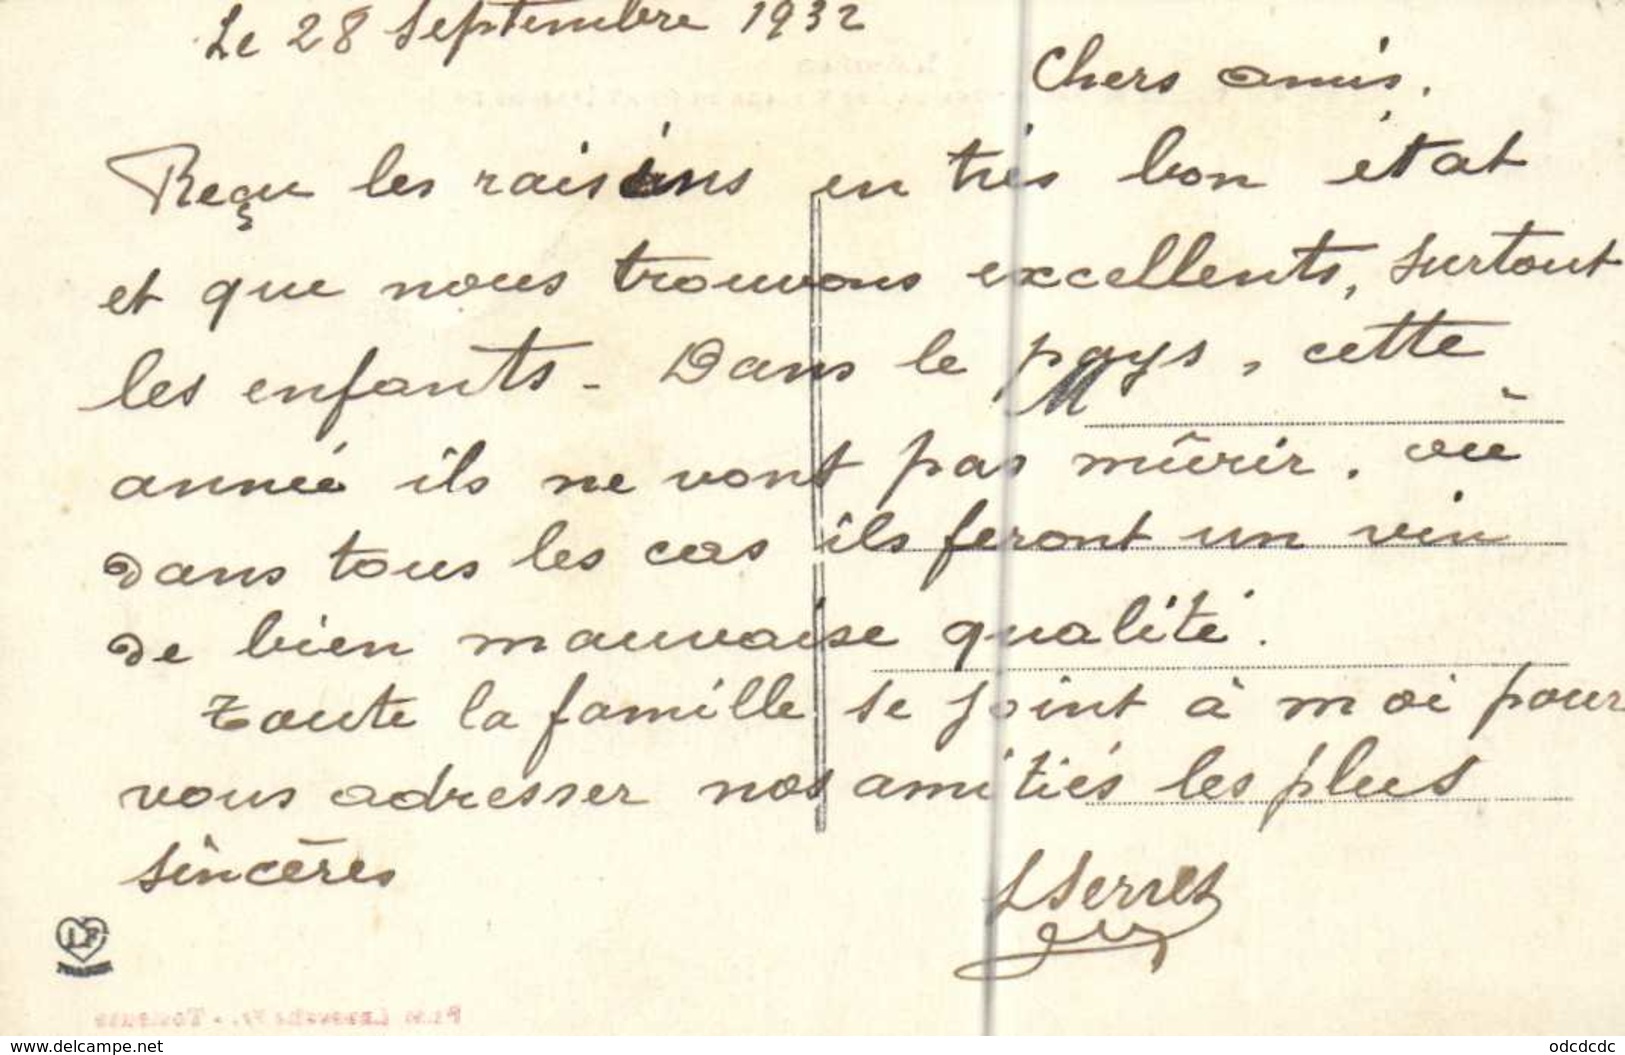 Le 28 Septembre 1932
Chers amis.
Reçu les raisins en très bon état
et que nous trouvons excellents, surtout
les enfants - Dans le pays, cette
M
année ils ne vont pas mûrir. ou
dans tous les cas ils feront un vin
de bien mauvaise qualité.
Toute la famille se joint à moi pour
vous adresser nos amitiés les plus
sincères
Serres
LF
www.delcampe.net
odcdcdc